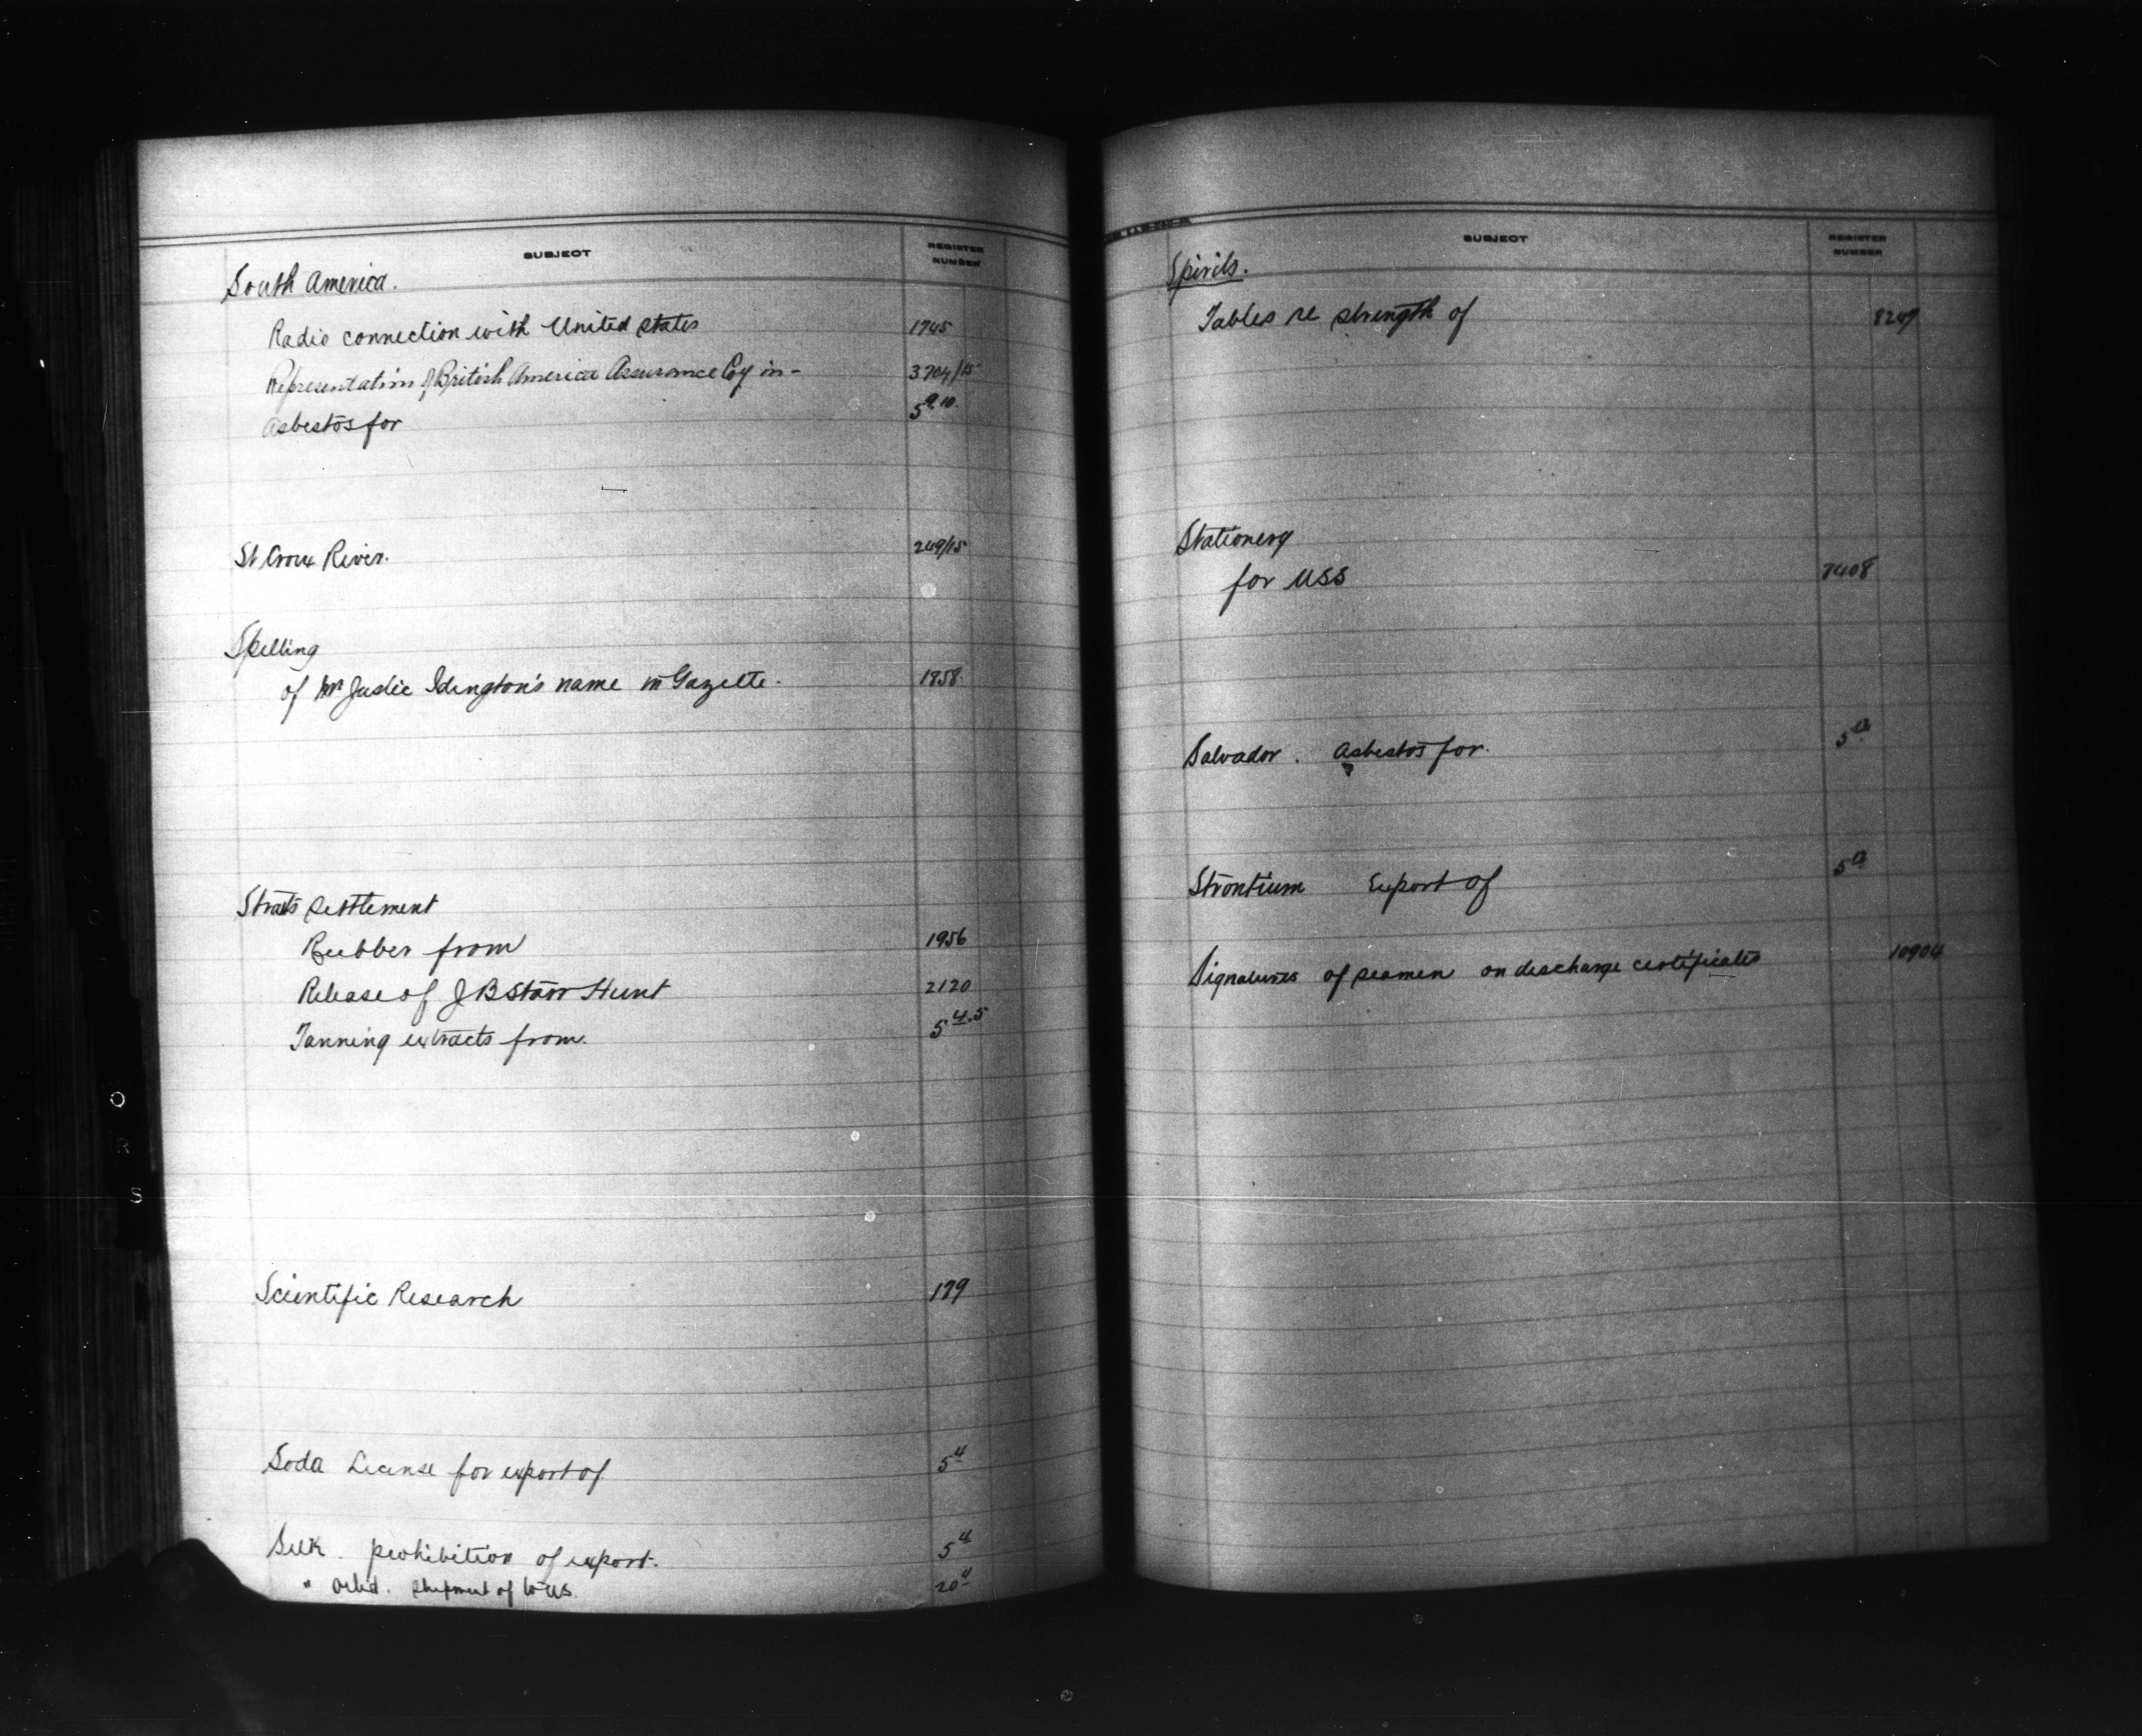 SUBJECT REGISTER NUMBER
South America.
Radio connection with United States 1745
Representation of British America Assurance Coy in - 3704/15
Asbestos for 5 9.10.
St Croix River. 249/15
Spelling
of Mr Justic Idington's name in Gazette. 1858
Straits Settlement
Rubber from 1956
Release of J B Starr Hunt 2120
Tanning extracts from. 5 4.5
Scientific Research 179
Soda License for export of 5 4
Silk. prohibition of export. 5 4
" shipment of to US. 20 4
SUBJECT REGISTER NUMBER
Spirits.
Tables re strength of 8247
Stationery
for USS 7408
Salvador. Asbestos for. 5
Strontium Export of 5
Signatures of seamen on discharge certificates 10904
O
R
S